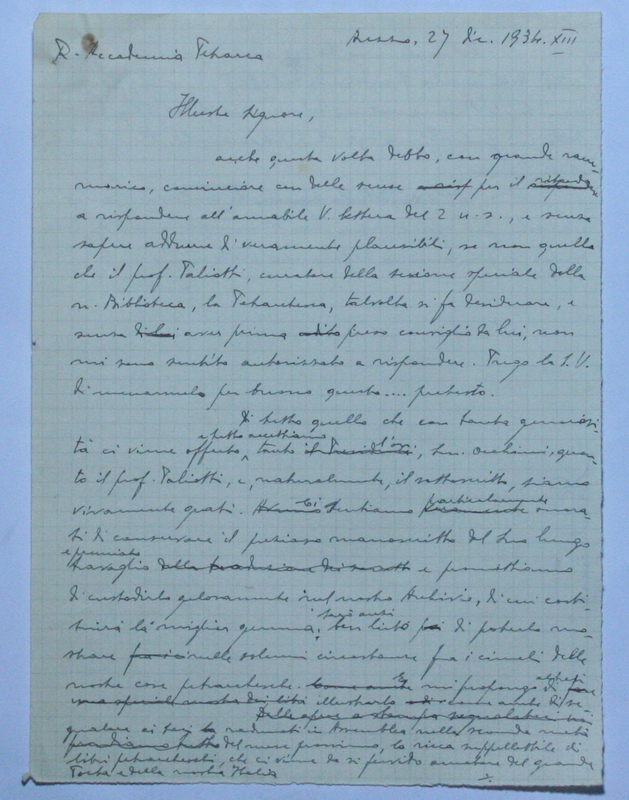 R. Accademia Petrarca
Arezzo, 27 dic. 1934. XIII
Illustre Signore,
anche questa volta debbo, con grande ram-
marico, cominciare con delle scuse per il rispondere
a rispondere all'amabile V. lettera del 2 u. s., e senza
sapere addurne di veramente plausibili, se non quella
che il prof. Paliotti, curatore della sezione speciale della
n. Biblioteca, la Petrarchesca, talvolta si fa desiderare, e
senza di lui aver prima udito preso consiglio da lui, non
mi sono sentito autorizzato a rispondere. Prego la S. V.
di menarmela per buono questo.... pretesto.
Di tutto quello che con tanta generosi-
e tutto accettiamo
tà ci viene offerto, tanto il Presidente, on. Occhini, quan-
to il prof. Paliotti, e, naturalmente, il sottoscritto, siamo
particolarmente
vivamente grati. Ci sentiamo vivamente onora-
ti di conservare il prezioso manoscritto del Suo lungo
e premiato
travaglio della traduzione e promettiamo
di custodirlo gelosamente nel nostro Archivio, di cui costi-
tuirà la miglior gemma, ben lieto poi di poterlo mo-
strare nelle solenni circostanze fra i cimeli delle
nostre cose petrarchesche. mi propongo di
illustrarlo come anche di se-
Delle opere a stampa segnalate
gnalare ai soci radunati in Assemblea nella seconda metà
del mese prossimo, la ricca suppellettile di
libri petrarcheschi, che ci viene da sì fervido amatore del grande
Poeta e della nostra Italia